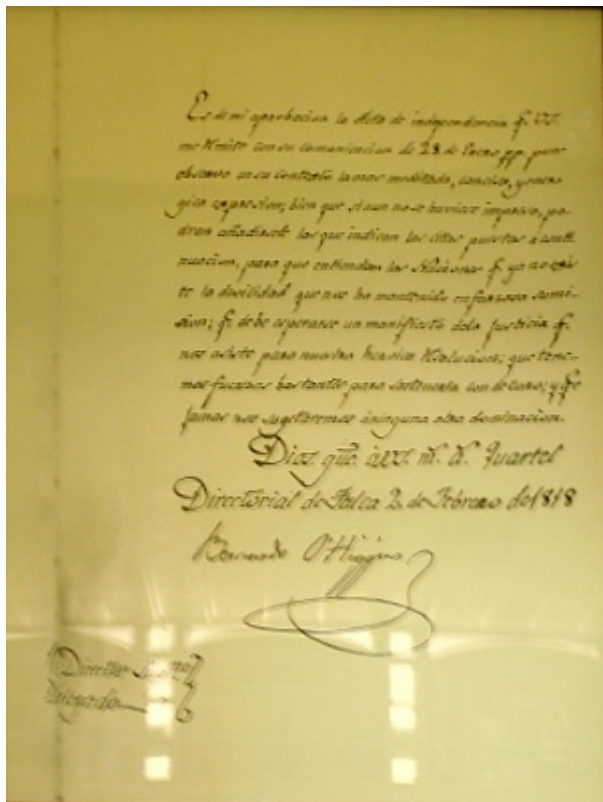 Es de mi aprobacion la Acta de independencia q.e VS.
me remite con su comunicacion de 28 de Enero pp. pues
observo en su contexto la mas meditada, concisa, y ener-
gica expresion; bien que si aun no se huviese impreso, po-
dran añadirse las que indican las citas puestas a conti-
nuacion, para que entiendan las Naciones q.e ya no exis-
te la devilidad que nos ha mantenido en forzosa sumi-
sion; q.e debe esperarse un manifiesto dela justicia q.e
nos asiste para nuestra heroica resolucion; que tene-
mos fuerzas bastantes para sostenerla con decoro; y q.e
jamas nos sugetaremos aninguna otra dominacion.
Dios gũe. à VS. m.s a.s Quartel
Directorial de Talca 2 de Febrero de 1818
Bernardo O'Higgins
Director Supremo
Delegado